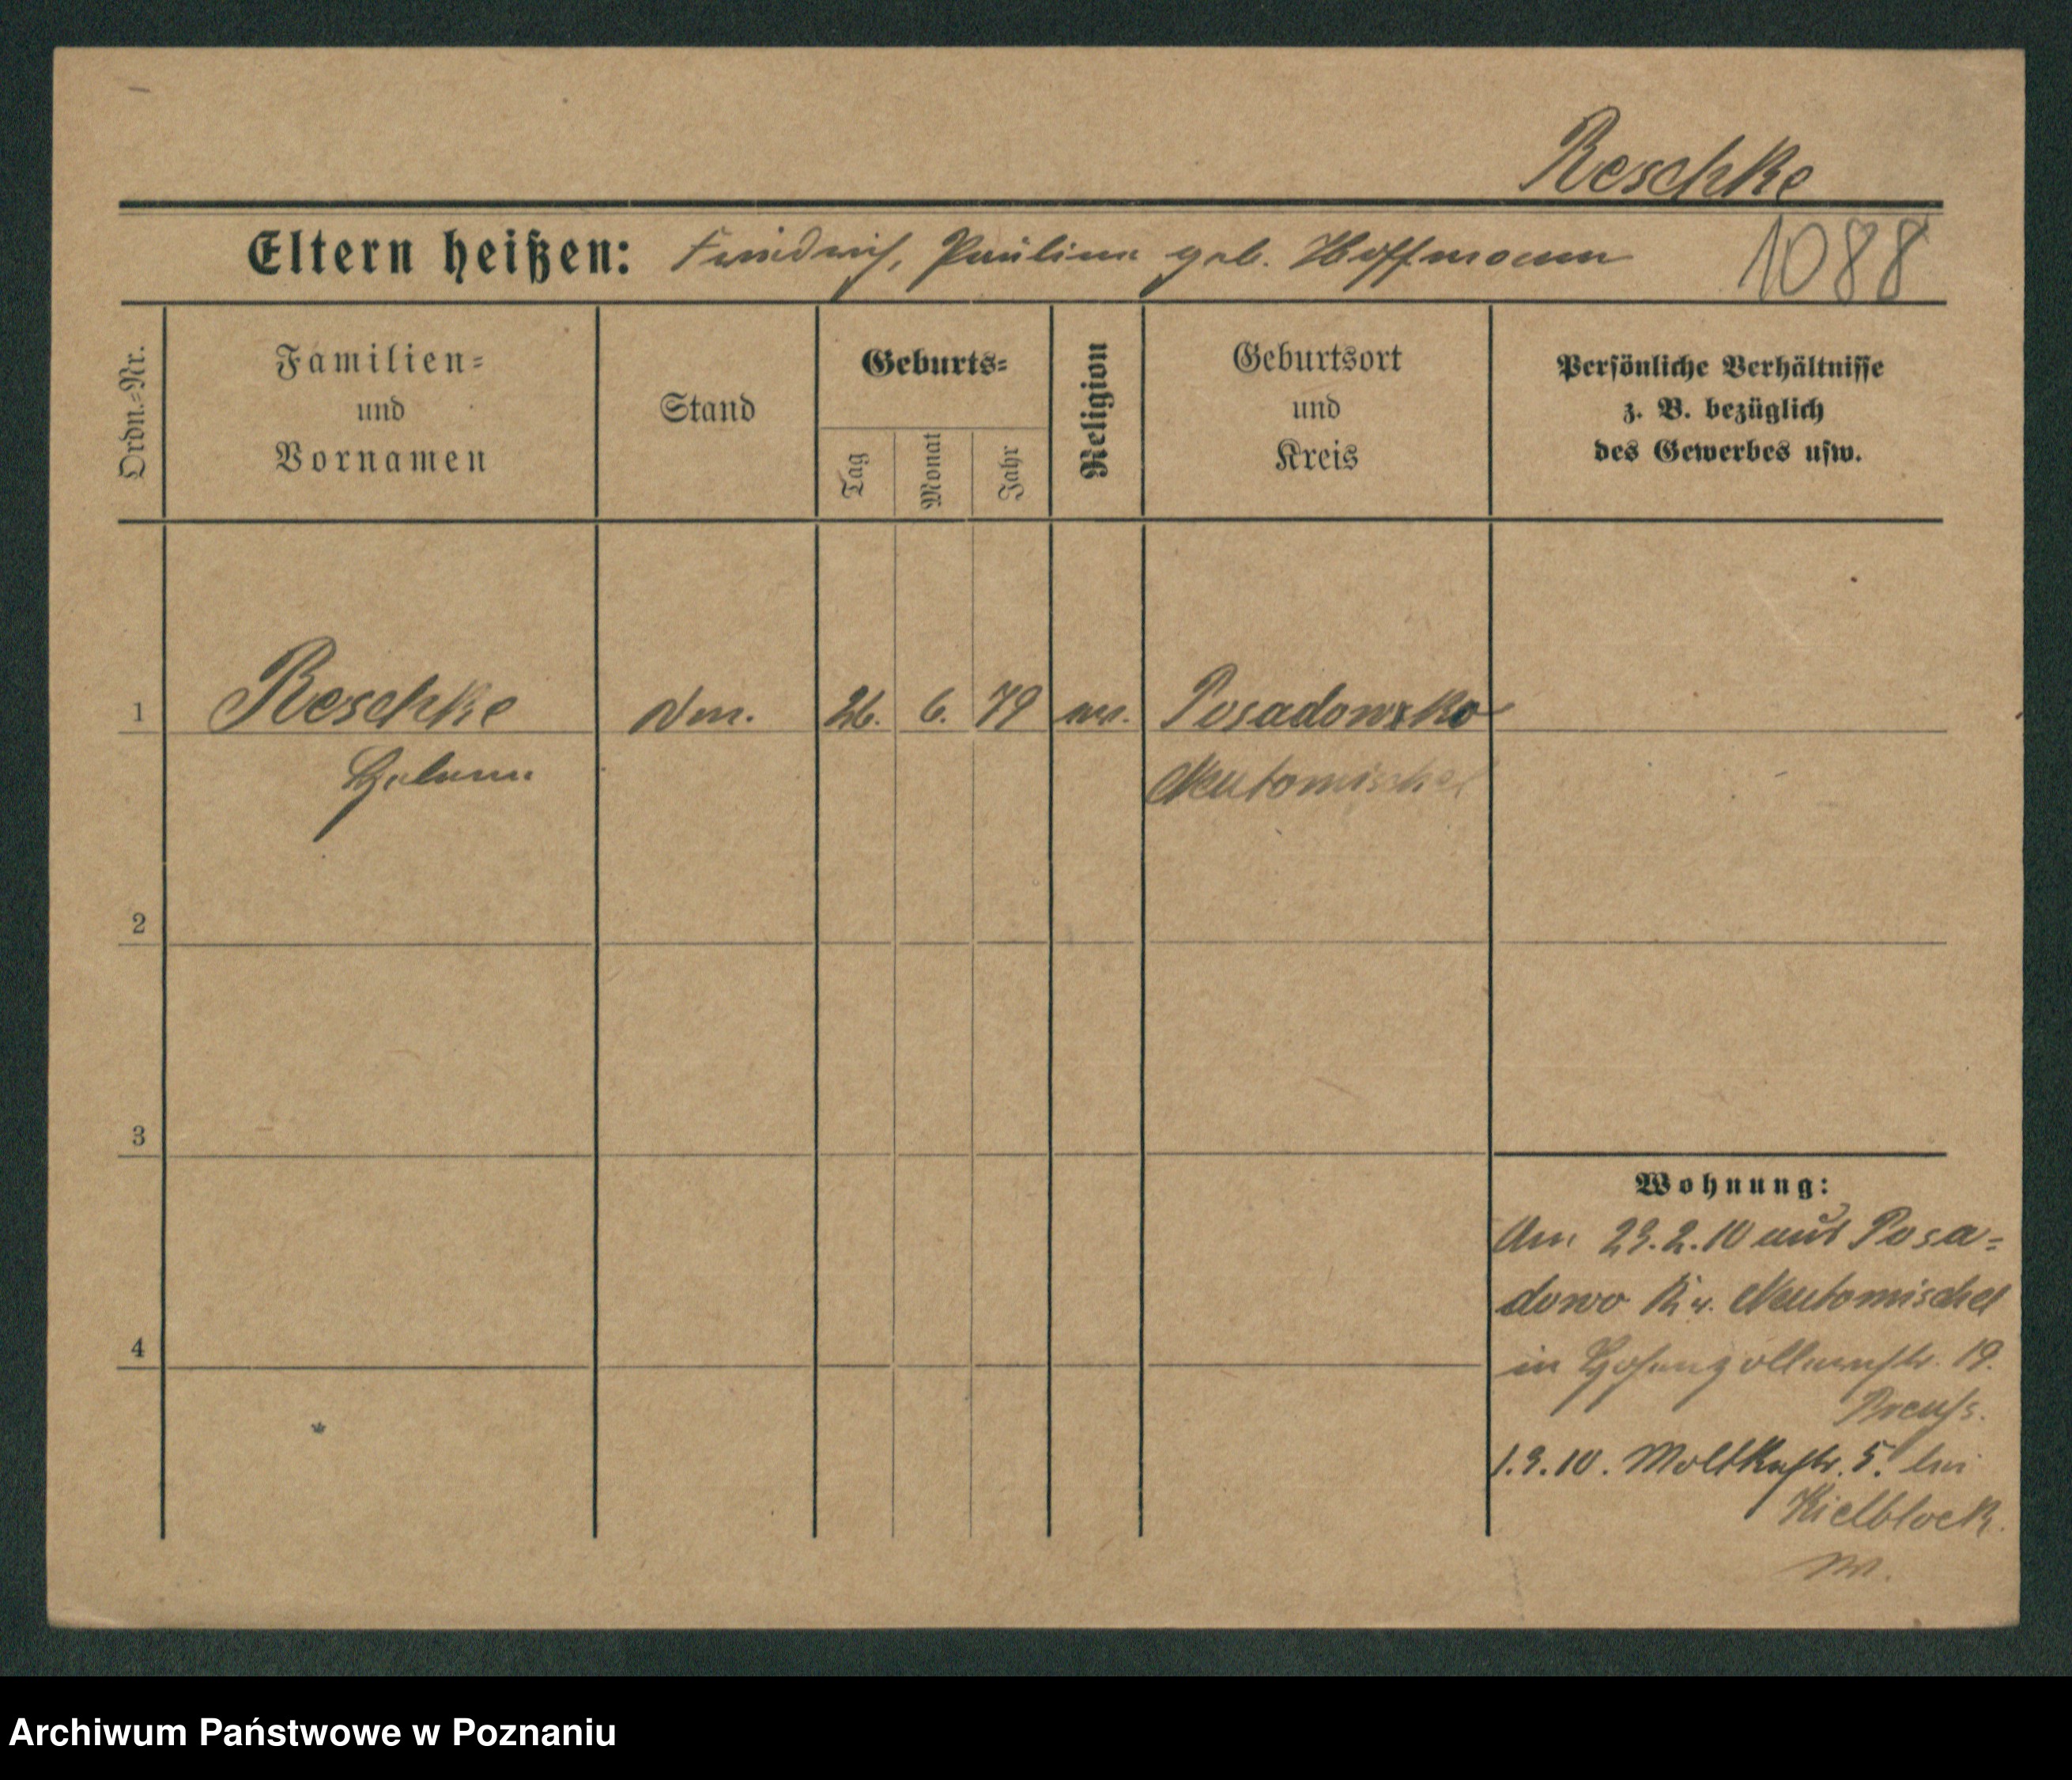 Reschke
Eltern heißen: Friedrich, Pauline geb. Hoffmann 1088
Ordn.-Nr.
Familien-
und
Vornamen
Stand
Geburts-
Tag
Monat
Jahr
Religion
Geburtsort
und
Kreis
Persönliche Verhältnisse
z. B. bezüglich
des Gewerbes usw.
1 Reschke 26. 6. 79 ev. Posadowsko
Helene Neutomischel
2
3
4
Wohnung:
Am 23.2.10 aus Posa-
dowo Kr. Neutomischel
in Hohenzollernstr. 19.
Preuß.
1.3.10. Moltkestr. 5. bei
Kielblock.